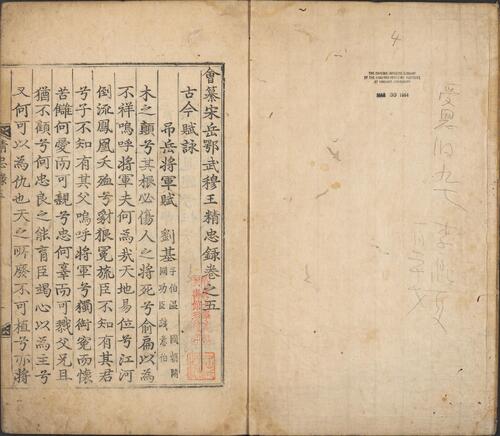 會纂宋岳鄂武穆王精忠錄卷之五
古今賦詠
吊岳將軍賦 劉基 字伯溫 國朝開國功臣誠意伯
木之顛兮其根必傷人之將死兮俞扁以為
不祥嗚呼將軍夫何為哉天地易位兮江河
倒流鳳凰夭殈兮豺狼冕旒臣不知有其君
兮子不知有其父嗚呼將軍兮獨銜冤而懷
苦讎何愛而可親兮忠何辜而可戮父兄且
猶不顧兮何忠良之能育臣竭心以為主兮
又何可以為仇也天之所廢不可植兮亦將
精忠錄
4
THE CHINESE-JAPANESE LIBRARY
OF THE HARVARD-YENCHING INSTITUTE
AT HARVARD UNIVERSITY
MAR 30 1954